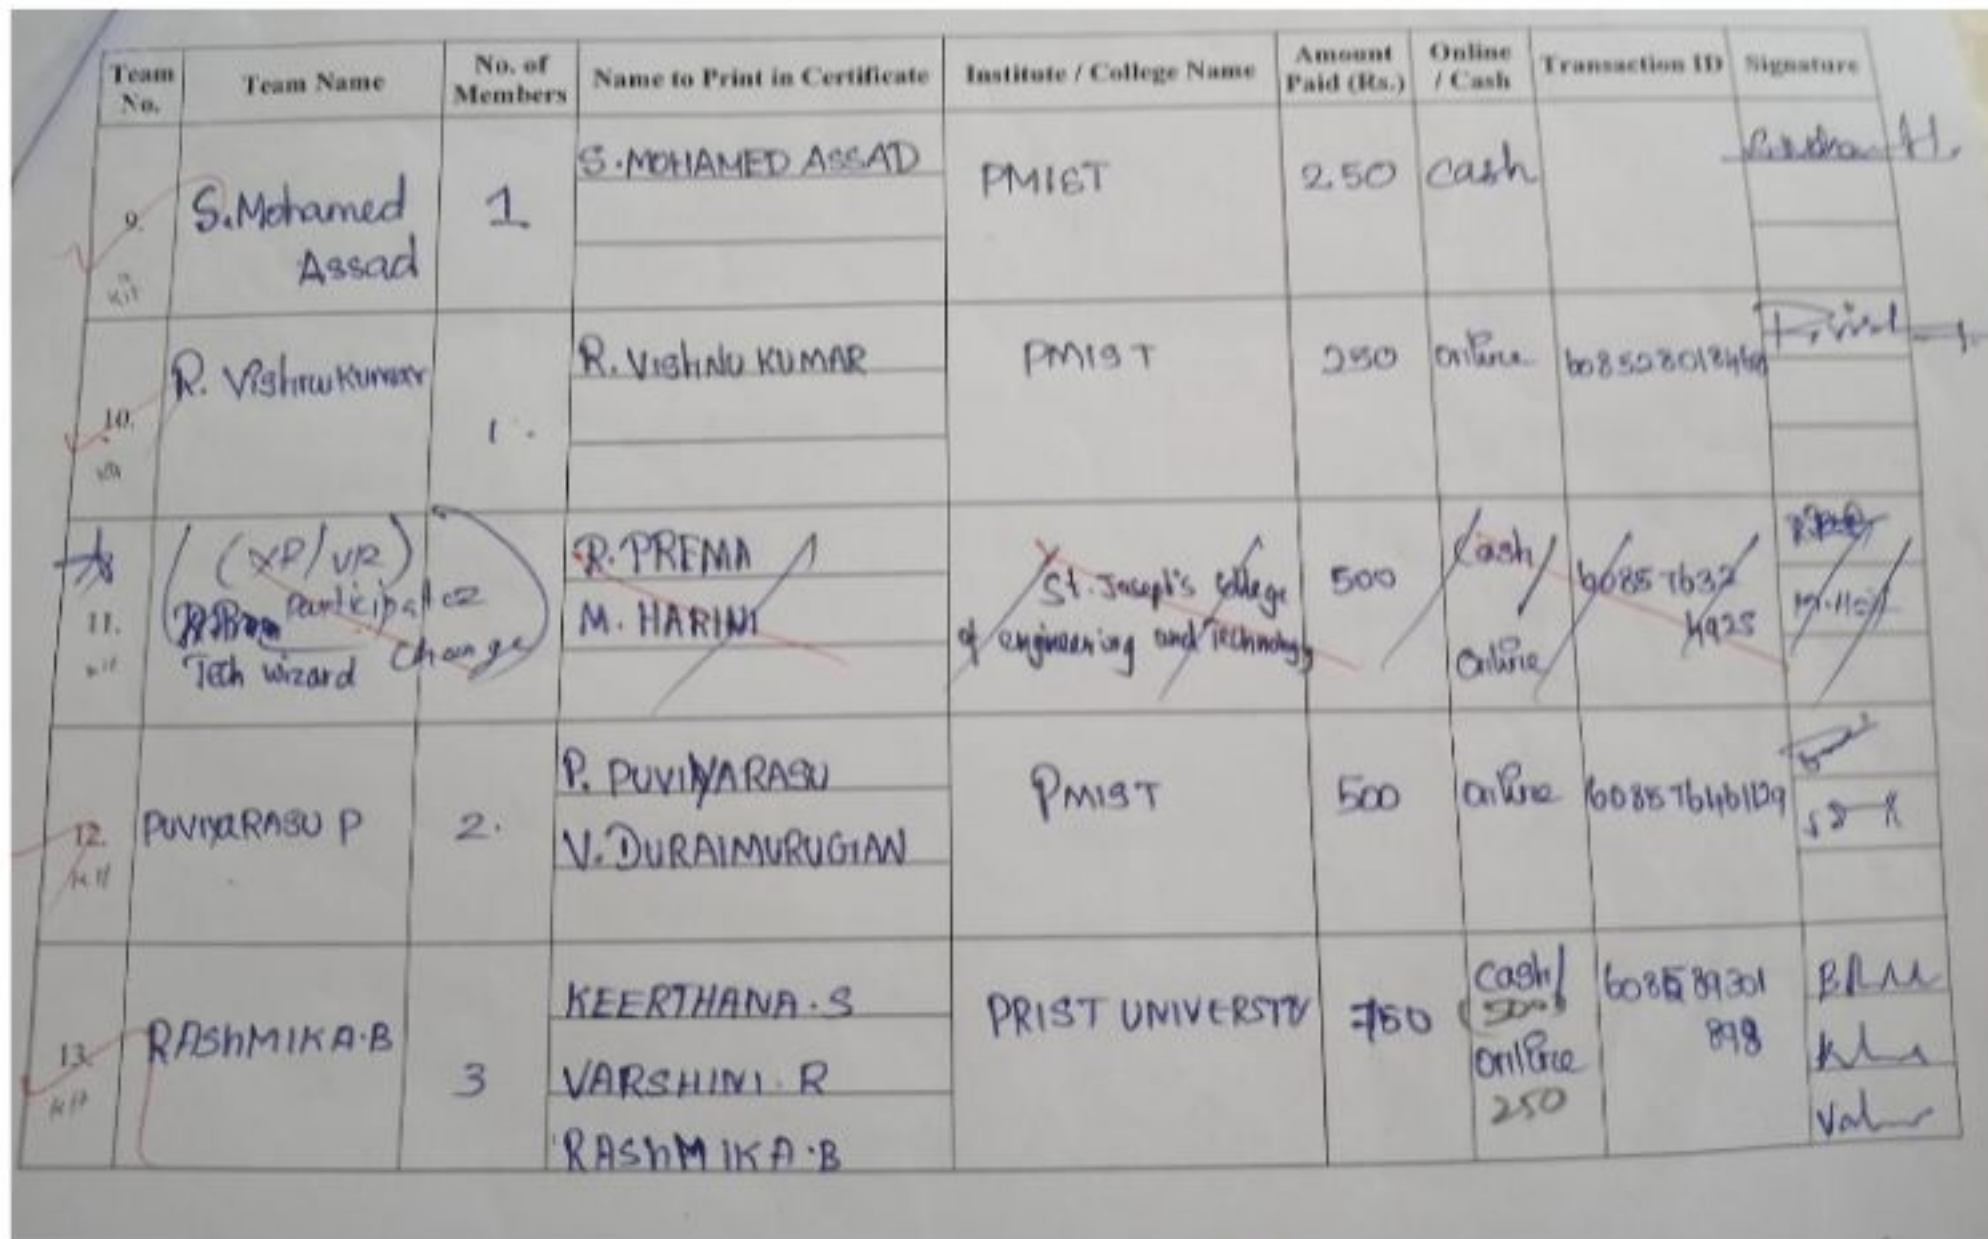 Team No. Team Name No. of Members Name to Print in Certificate Institute / College Name Amount Paid (Rs.) Online / Cash Transaction ID Signature
9. S.Mohamed Assad 1 S.MOHAMED ASSAD PMIST 250 Cash
Kit
10. R. Vishnukumar 1. R. VISHNU KUMAR PMIST 250 Online
11. (XR/VR) Participates Change
Tech wizard
R. PREMA
M. HARINI
St. Joseph's College
of engineering and Technology
500 Cash/ Online 60857632 4925
Kit
12. PUVIYARASU P 2. P. PUVIYARASU PMIST 500 Online
V. DURAIMURUGAN
Kit
13. RASHMIKA.B 3 KEERTHANA.S PRIST UNIVERSITY 750 Cash/ (500) Online 250 608589301 898
VARSHINI. R
RASHMIKA.B
Kit